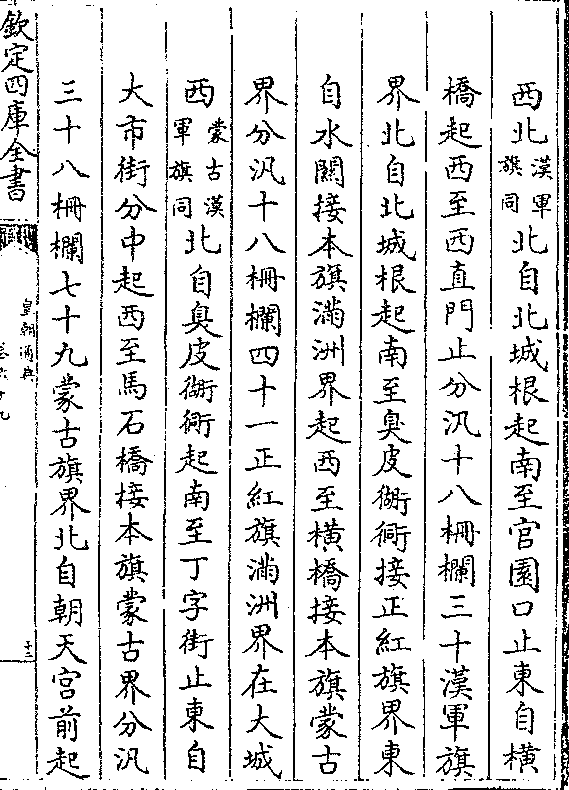 西北漢軍旗同北自北城根起南至官園口止東自橫
橋起西至西直門止分汛十八柵欄三十漢軍旗
界北自北城根起南至臭皮衚衕接正紅旗界東
自水關接本旗滿洲界起西至橫橋接本旗蒙古
界分汛十八柵欄四十一正紅旗滿洲界在大城
西蒙古漢軍旗同北自臭皮衚衕起南至丁字街止東自
大市街分中起西至馬石橋接本旗蒙古界分汛
三十八柵欄七十九蒙古旗界北自朝天宮前起
欽定四庫全書
皇朝通典
卷六十九
十三